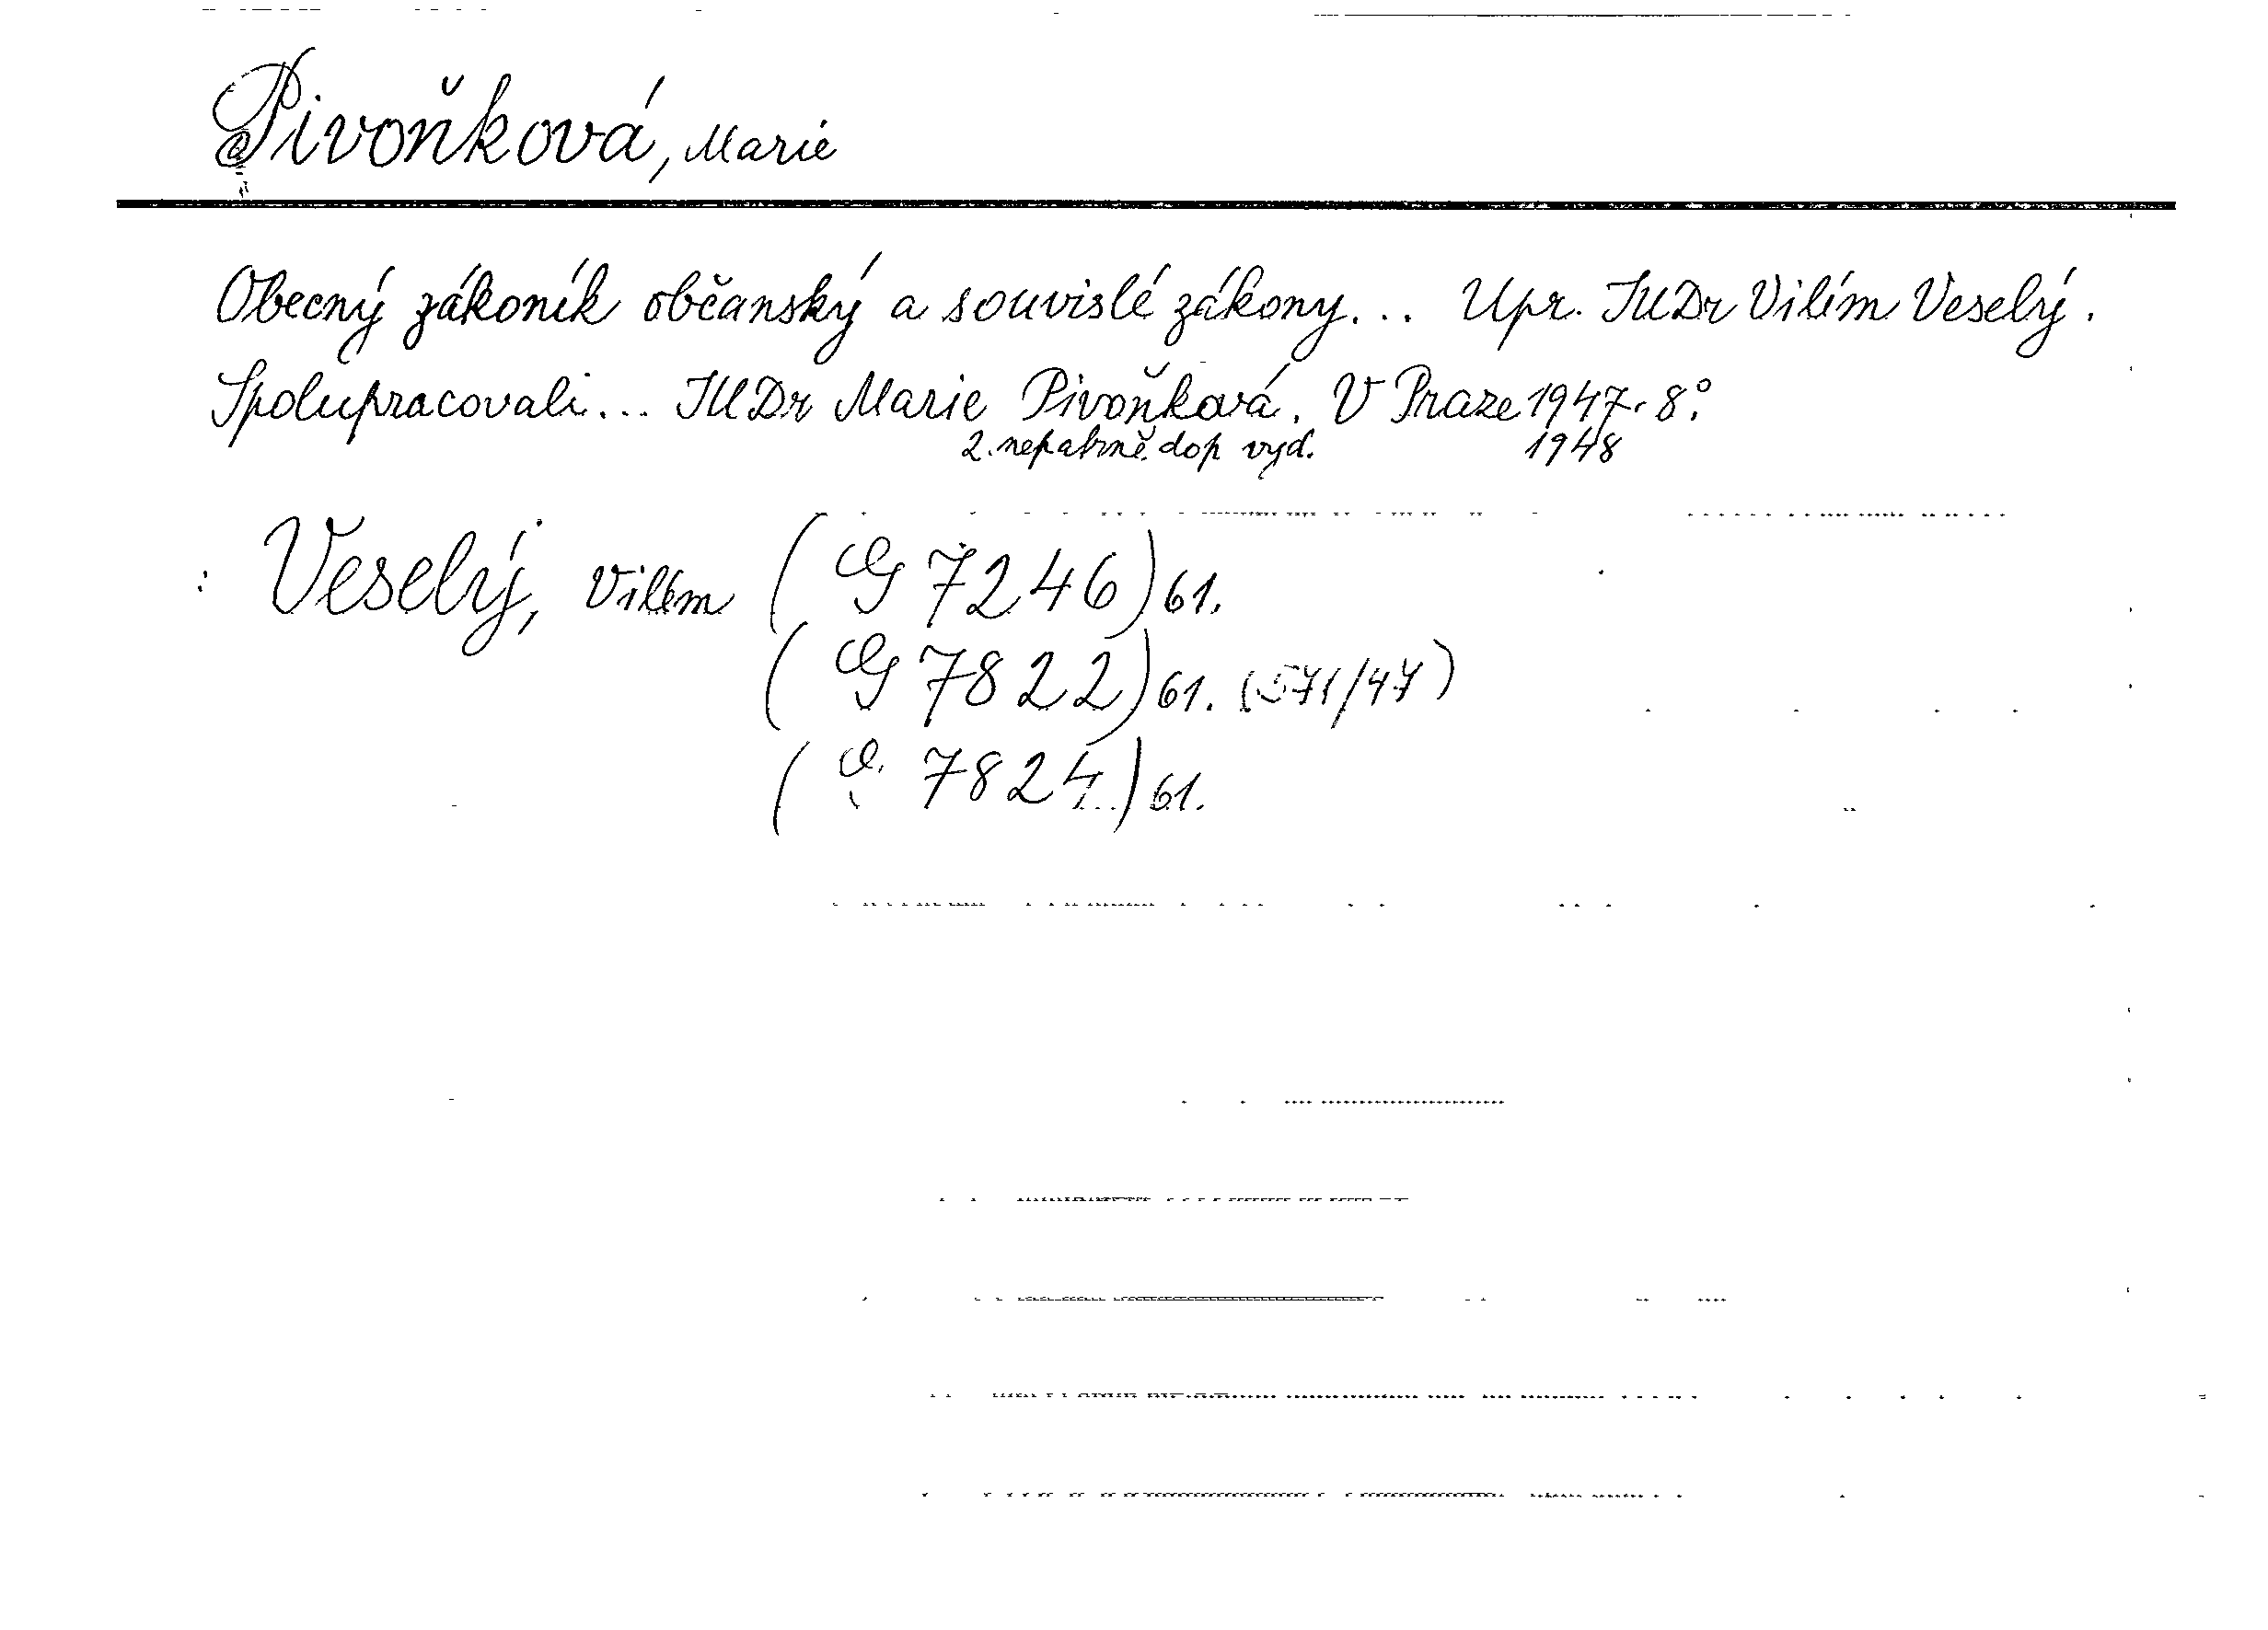 Pivoňková, Marie
Obecný zákoník občanský a souvislé zákony... Upr. JUDr Vilém Veselý.
Spolupracovali... JUDr Marie Pivoňková. V Praze 1947. 8°.
2. nepatrně dop vyd. 1948
: Veselý, Vilém (G 7246) 61.
(G 7822) 61. (571/47)
( 7824) 61.